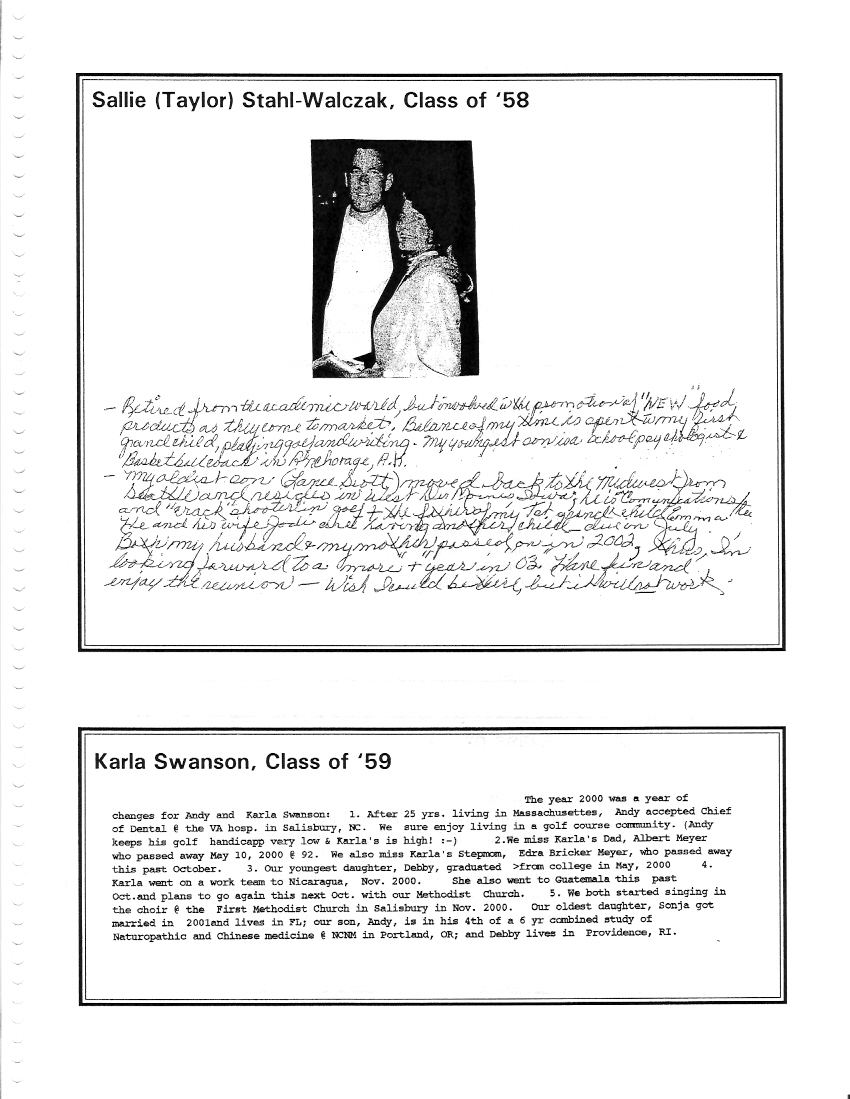 Sallie (Taylor) Stahl-Walczak, Class of '58
- Retired from the academic world, but involved in the promotion of "NEW" food
products as they come to market. Balance of my time is spent w my first
grandchild, playing golf and writing. My youngest son is a school psychologist &
Basketball coach in Anchorage, AK.
- My oldest son (Lance Scott) moved back to the Midwest from
Seattle and resides in West Des Moines Iowa; he is Comunications
and "crack" shooter in golf & the father of my 1st grandchild Emma
He and his wife Jodi are having another child due in July.
Both my husband & my mother passed on in 2002, thus, I'm
looking forward to a more "+" year in 03. Have fun and
enjoy the reunion - Wish I could be there, but it will not work.
Karla Swanson, Class of '59
The year 2000 was a year of
changes for Andy and Karla Swanson: 1. After 25 yrs. living in Massachusettes, Andy accepted Chief
of Dental @ the VA hosp. in Salisbury, NC. We sure enjoy living in a golf course community. (Andy
keeps his golf handicapp very low & Karla's is high! :-) 2.We miss Karla's Dad, Albert Meyer
who passed away May 10, 2000 @ 92. We also miss Karla's Stepmom, Edra Bricker Meyer, who passed away
this past October. 3. Our youngest daughter, Debby, graduated >from college in May, 2000 4.
Karla went on a work team to Nicaragua, Nov. 2000. She also went to Guatemala this past
Oct.and plans to go again this next Oct. with our Methodist Church. 5. We both started singing in
the choir @ the First Methodist Church in Salisbury in Nov. 2000. Our oldest daughter, Sonja got
married in 2001and lives in FL; our son, Andy, is in his 4th of a 6 yr combined study of
Naturopathic and Chinese medicine @ NCNM in Portland, OR; and Debby lives in Providence, RI.